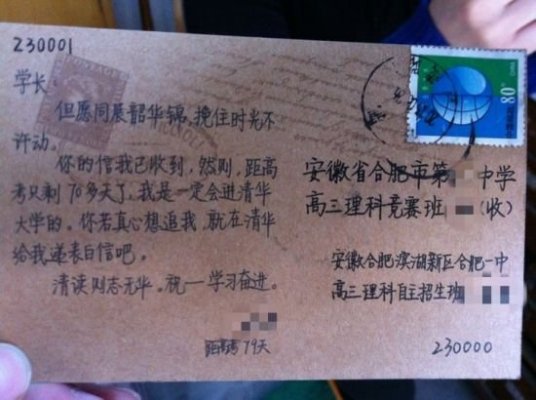 230001
学长
但愿同展韶华锦，挽住时光不
许动。
你的信我已收到，然则，距高
考只剩 70多天了，我是一定会进清华
大学的。你若真心想追我，就在清华
给我递表白信吧。
清读则志无华。祝一学习奋进。
距高考 79天
80
安徽省合肥市第 中学
高三理科竞赛班 (收)
安徽合肥滨湖新区合肥一中
高三理科自主招生班
230000